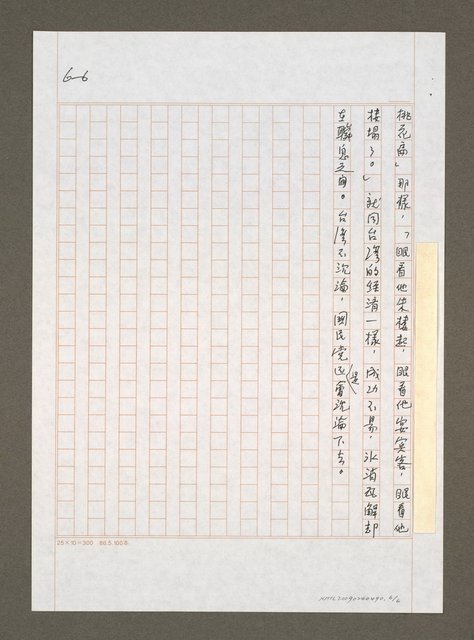 6-6
桃花扇」那樣,「眼看他朱樓起,眼看他宴賓客,眼看他
樓塌了。」就同台灣的經濟一樣,成功不易,冰消瓦解卻
在瞬息之間。台灣不沉淪,國民黨還是會沉淪下去。
25×10=300 86.5.100本
NMTL20090240490, 6/6